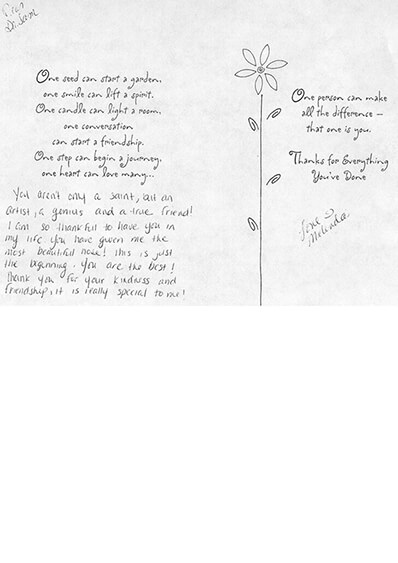 Dear
Dr. Sam
One seed can start a garden,
one smile can lift a spirit.
One candle can light a room,
one conversation
can start a friendship.
One step can begin a journey,
one heart can love many...
You aren't only a saint, but an
artist, a genius and a true friend!
I am so thankful to have you in
my life you have given me the
most beautiful nose! This is just
the beginning. You are the best!
Thank you for your kindness and
friendship, it is really special to me!
One person can make
all the difference –
that one is you.
Thanks for Everything
You've Done
Love
Melinda